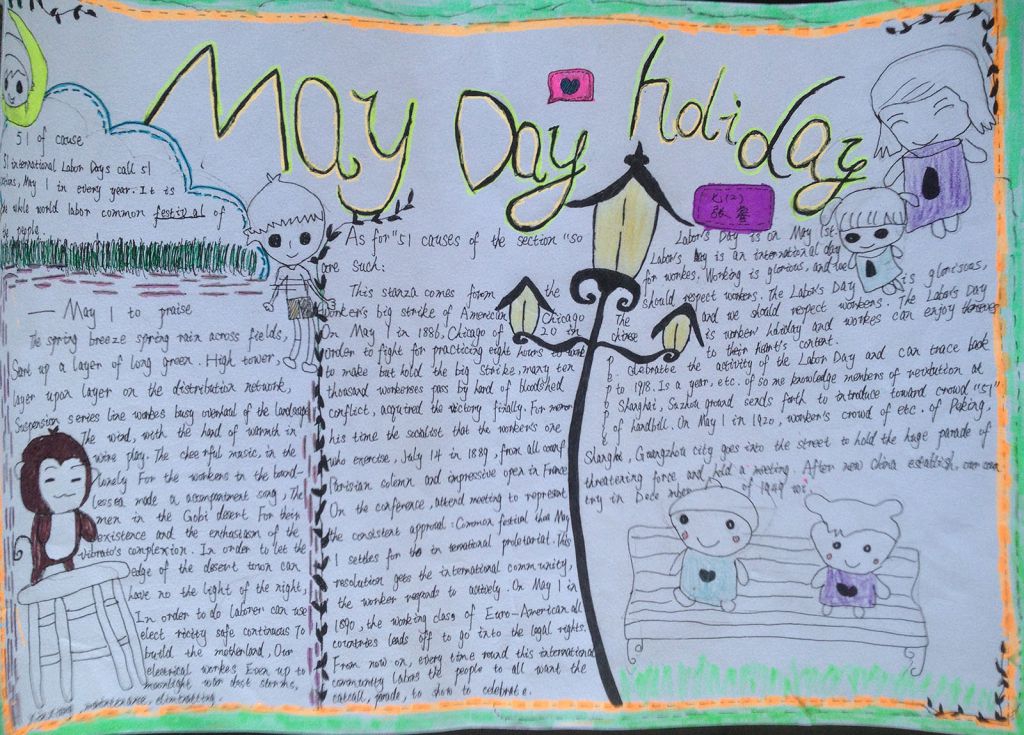 May Day holiday
51 of cause
51 international Labor Days call 51
May 1 in every year. It is
the while world labor common festival of
the people
— May 1 to praise
The spring breeze spring rain across fields,
Sart up a layer of long green. High tower,
layer upon layer on the distribution network,
Suspension series line workes busy overhaul of the landscape
The wind, with the hand of warmth in
wire play. The cheerful music, in the
lonely For the workers in the bound-
lessea made a accompartment song, The
men in the Gobi desert For their
existence and the enthusiasm of the
vibrato's complexion. In order to let the
edge of the desert town can
have no the light of the night,
In order to do laborer can use
elect ricity safe continuous To
build the motherland, Our
electrical workes Even up to
moonlight war dust storms,
maintenance, eliminating.
As for "51 causes of the section "so
are such:
This stanza comes form the
Worker's big strike of American Chicago
On May 1 in 1886, Chicago of 20 in
order to fight for practicing eight hours to work
to make but hold the big Strike, many ten
thousand workerses pass by hand of bloodshed
conflict, acquired the victory finally. For
his time the socialist that the workers's one
who exercise, July 14 in 1889, from all
Parisian solemn and impressive open in France
On the conference, attend meeting to represent
the consistent approval: Common festival than May
1 settles for the in ternational proletariat. This
resolution gets the international comm unity,
the worker regards to actively. On May 1 in
1890, the working class of Euro-American all
countries leads off to go into the legal rights.
From now on, every time round this international
community labors the people to all want the
catcall, parade, to show to celebrate.
七(2)
Labor's Day is on May 1st.
Labor's Day is an international day
for workes. Working is glorious, and we
should respect workers. The Labor's Day is gloriours,
and we should respect workers. The Labor's Day
is worker' holiday and workes can enjoy
to their heart's content.
The chinese
celebratte the activity of the Labor Day and can trace back
to 1918. Is a year, etc. of so me knowledge members of revolution at
Shanghai, Suzhou ground sends forth to introduce toward crowd "51"
of handbill. On May 1 in 1920, worker's crowd of etc. of Peking,
Shanghai, Guangzhou city goes into the street to hold the huge parade of
threatening force and hold a meeting. After new China establish,
try in Dece mber of 1949